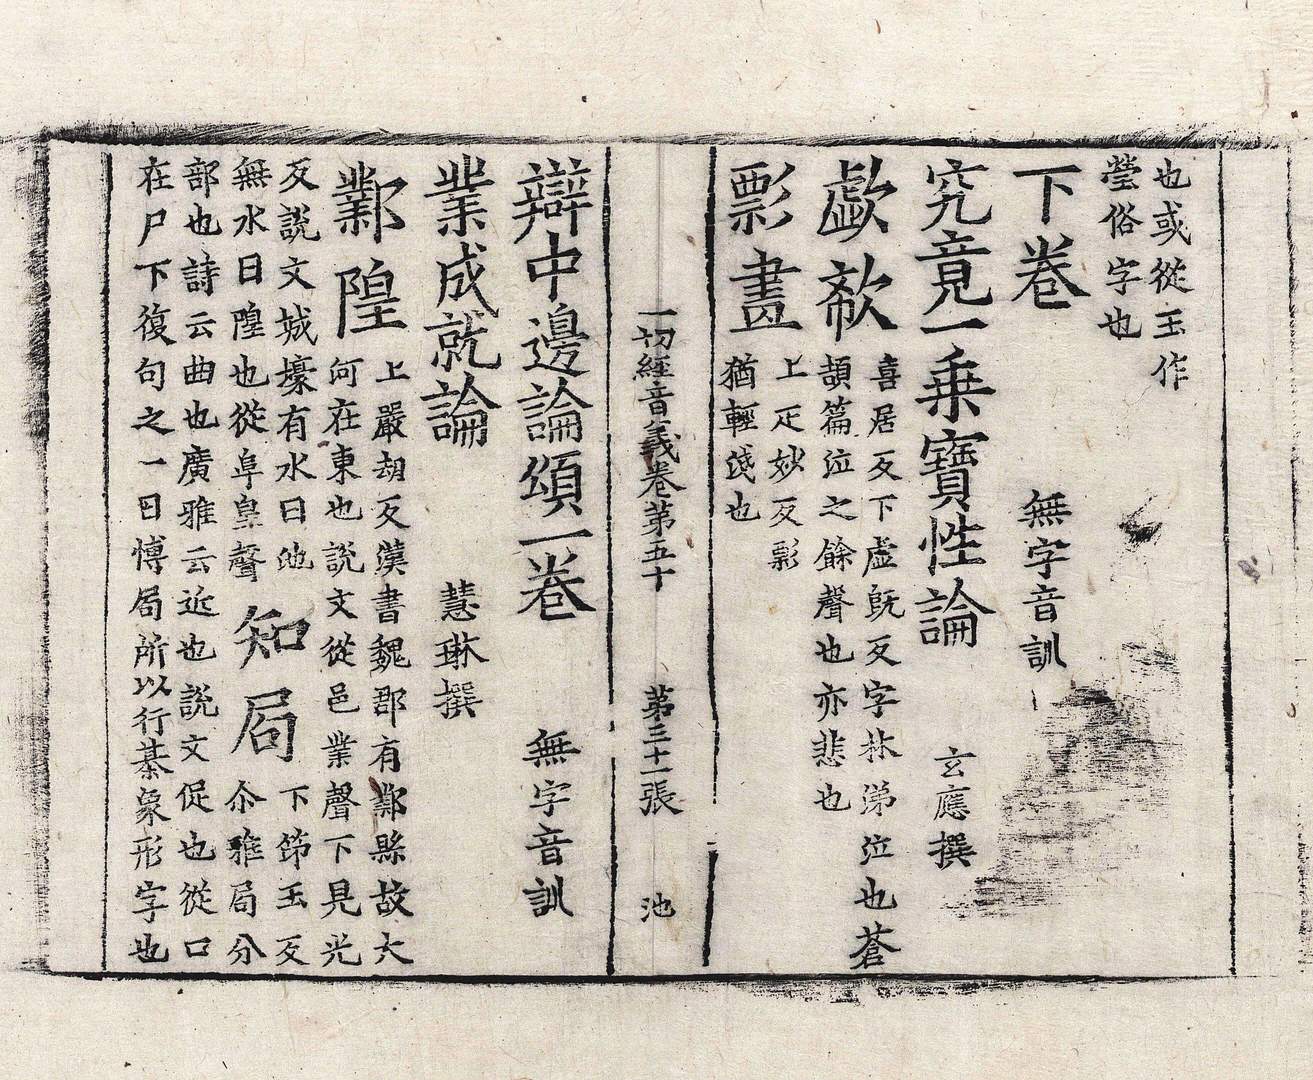 也或從玉作
瑩俗字也
下卷 無字音訓
究竟一乗寶性論 玄應撰
歔欷 喜居反下虚旣反字林涕泣也蒼
頡篇泣之餘聲也亦悲也
影畫 上疋妙反影
猶輕淺也
一切經音義卷第五十 第三十一張 池
辯中邊論頌一卷 無字音訓
業成就論 慧琳撰
鄴隍 上嚴刧反漢書魏郡有鄴縣故大
河在東也說文從邑業聲下晃光
反説文城壕有水曰池
無水曰隍也從阜皇聲
知局 下笻玉反
尒雅局分
部也詩云曲也廣雅云近也説文促也從口
在尸下復句之一曰博局所以行棊象形字也